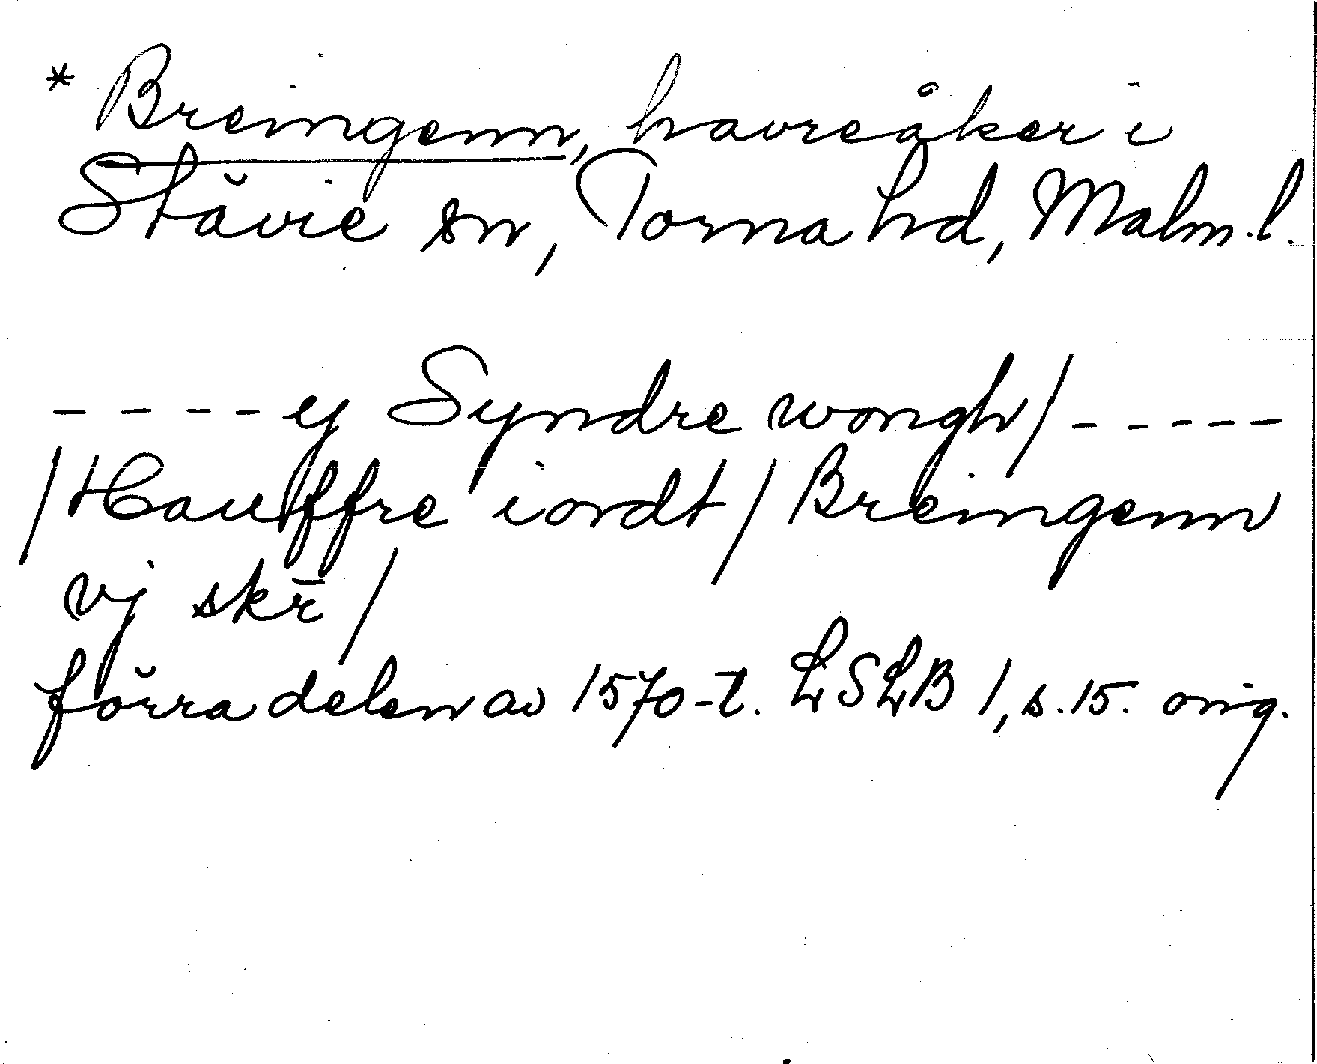 * Breingenn, havreåker i
Stävie sn, Torna hd, Malm.l.
----ej Syndre wongh/-----
/Hauffre iordt/Breingenn
vj skr̄/
förra delen av 1570-t. LSLB 1, s.15. orig.